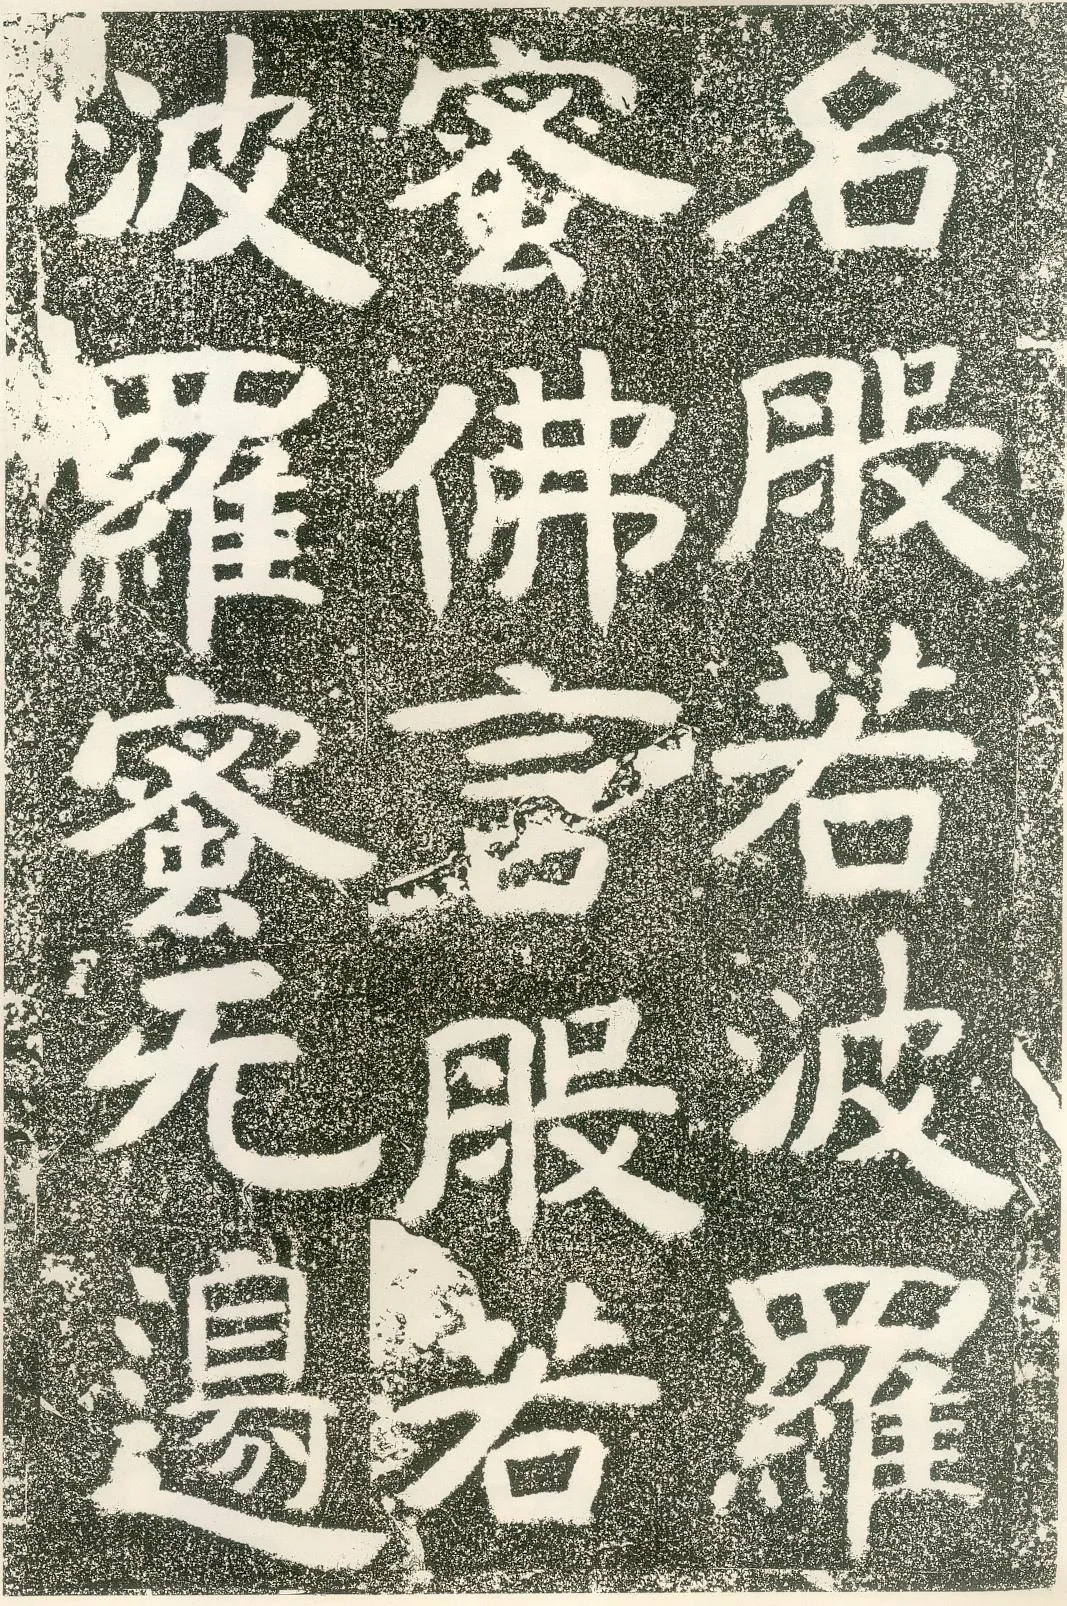 名股若波羅
蜜佛言股若
波羅蜜无邊